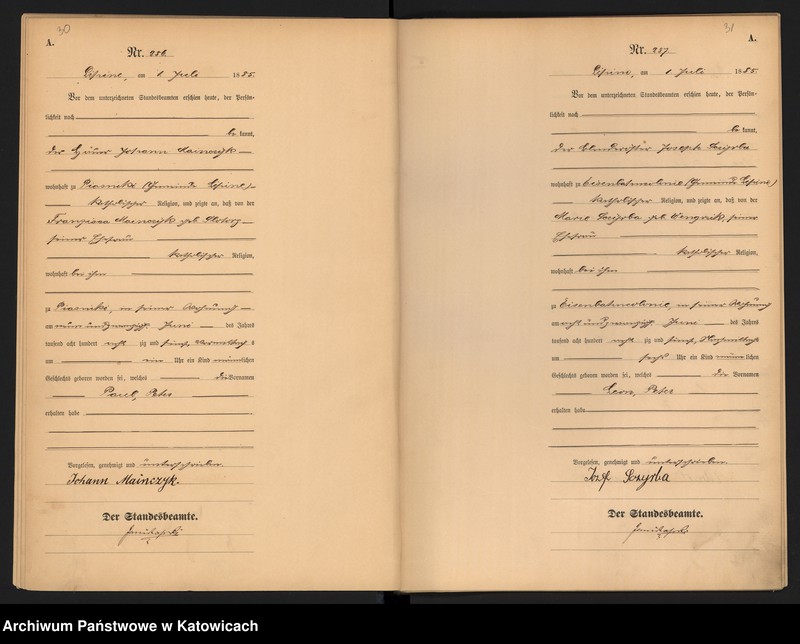 30
A.
Nr. 286.
Lipine, am 1. Juli 1885.
Vor dem unterzeichneten Standesbeamten erschien heute, der Persön-
lichkeit nach
be kannt,
der Johann Mainczyk
wohnhaft zu Piasniki (Gemeinde Lipine)
katholischer Religion, und zeigte an, daß von der
Franzisca Mainczyk geb.
seiner Ehefrau
katholischer Religion,
wohnhaft bei ihm
zu Piasniki, in seiner Wohnung
am neun und zwanzigsten Juni des Jahres
tausend acht hundert acht zig und fünf, Vormittags
um ein Uhr ein Kind männlichen
Geschlechts geboren worden sei, welches die Vornamen
Paul, Peter
erhalten habe
Vorgelesen, genehmigt und unterschrieben
Johann Mainczyk.
Der Standesbeamte.
31
A.
Nr. 287.
Lipine, am 1. Juli 1885.
Vor dem unterzeichneten Standesbeamten erschien heute, der Persön-
lichkeit nach
be kannt,
der Joseph Szyrba
wohnhaft zu (Gemeinde Lipine)
katholischer Religion, und zeigte an, daß von der
Marie Szyrba geb. seiner
Ehefrau
katholischer Religion,
wohnhaft bei ihm
zu in seiner Wohnung
am acht und zwanzigsten Juni des Jahres
tausend acht hundert acht zig und fünf, Nachmittags
um sechs Uhr ein Kind männlichen
Geschlechts geboren worden sei, welches die Vornamen
Leon, Peter
erhalten habe
Vorgelesen, genehmigt und unterschrieben
Józef Szyrba
Der Standesbeamte.
Archiwum Państwowe w Katowicach